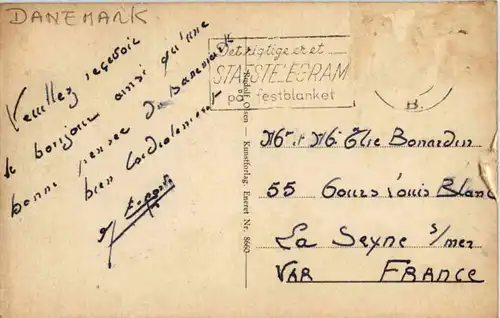 DANEMARK
Veuillez recevoir
le bonjour ainsi qu'une
bonne pensée du Danemark
bien cordialement
Det rigtige er et
STADSTELEGRAM
på festblanket
Rudolf Olsen - Kunstforlag Eneret Nr. 8660
Mr et Me Elie Bonardin
55 Cours Louis Blanc
La Seyne s/mer
VAR FRANCE